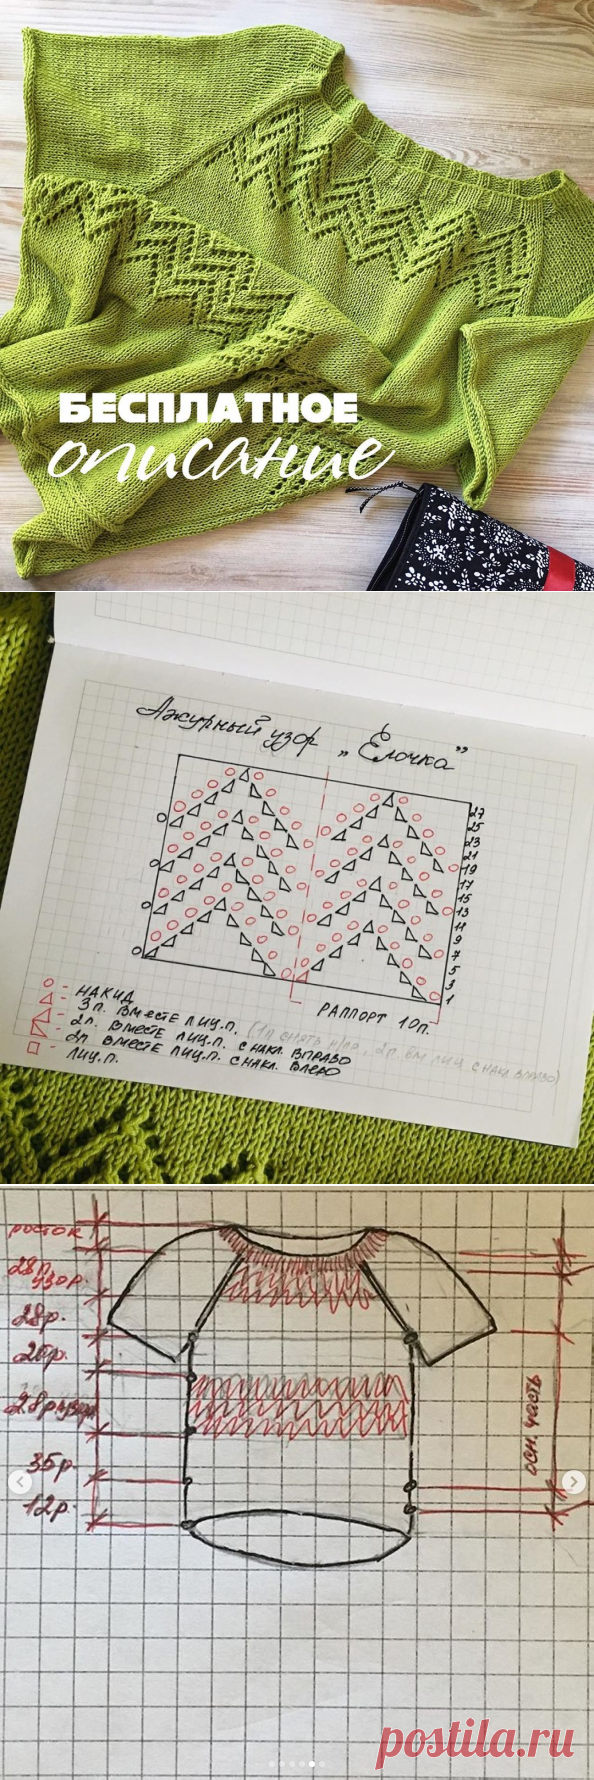 БЕСПЛАТНОЕ
описание
Ажурный узор „Ёлочка”
27
25
23
21
19
17
15
13
11
9
7
5
3
1
РАППОРТ 10п.
- НАКИД
- 3п. ВМЕСТЕ ЛИЦ.П. (1п снять н/пр, 2п вм лиц с накл вправо)
- 2п. ВМЕСТЕ ЛИЦ.П. С НАКЛ. ВПРАВО
- 2п ВМЕСТЕ ЛИЦ.П. С НАКЛ. ВЛЕВО
- ЛИЦ.П.
росток
28р. узор.
28р.
20р.
28р узора
35р.
12р.
осн. часть
postila.ru